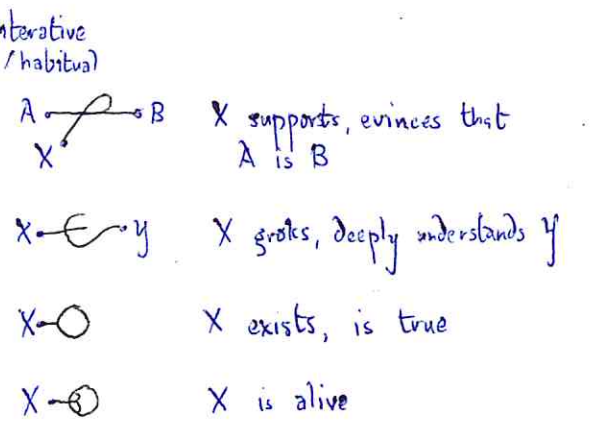 nterative
/habitual
A B X supports, evinces that
X A is B
X Y X groks, deeply understands Y
X X exists, is true
X X is alive